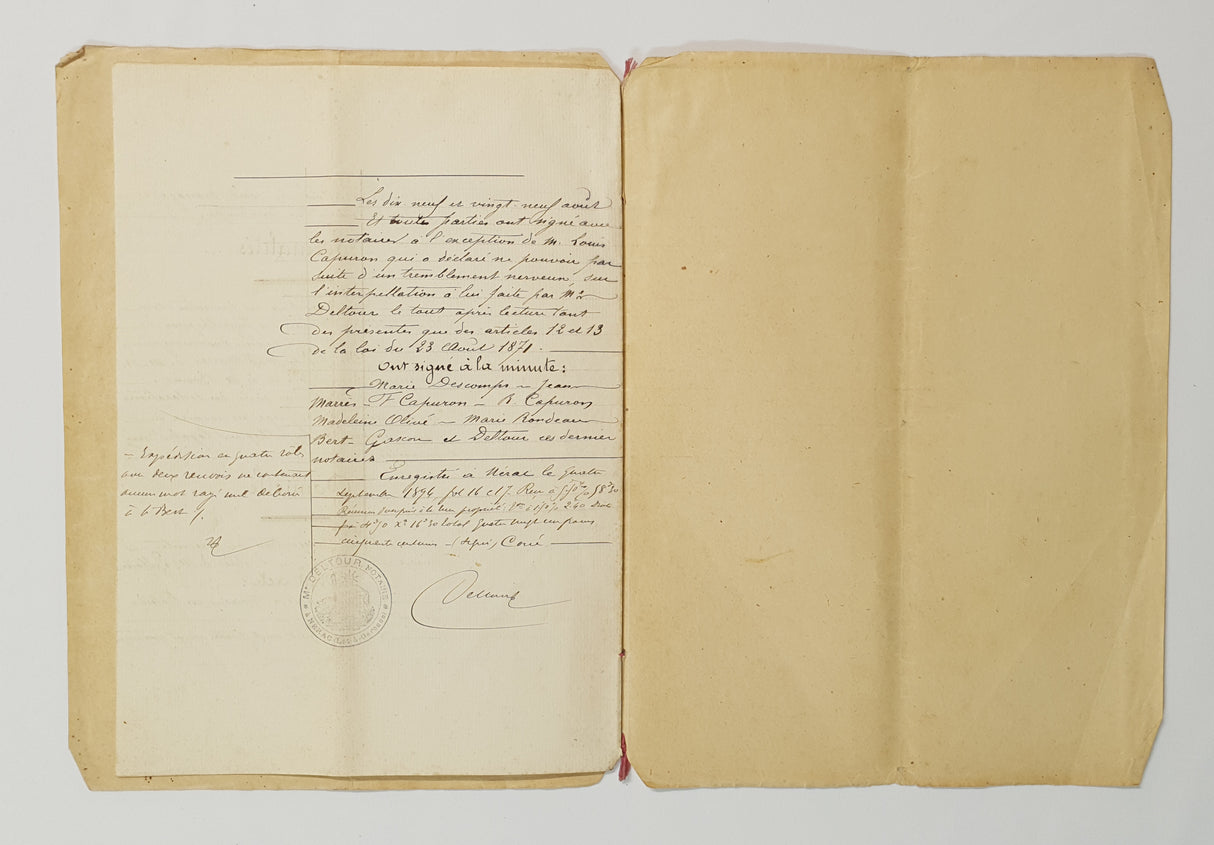 Les dix neuf et vingt-neuf août
Et toutes parties ont signé avec
les notaires à l'exception de M. Louis
Capuron qui a déclaré ne pouvoir par
suite d'un tremblement nerveux, sur
l'interpellation à lui faite par Me
Deltour le tout après lecture tant
des présentes que des articles 12 et 13
de la loi du 23 Août 1871.
Ont signé à la minute:
Marie Descomps - Jean
Marrès - F Capuron - B. Capuron
Madeleine Olivé - Marie Rondeau
Bert - Gascon et Deltour ces dernier
notaires
Enregistré à Nérac le quatre
Septembre 1896 fol 16 c 17. Reçu à
total quatre vingt un francs
cinquante centimes - (signé) Corré
- Expédition en quatre rôles
avec deux renvois ne contenant
aucun mot rayé nul délivré
à Bert
Me DELTOUR NOTAIRE
A NERAC
Deltour